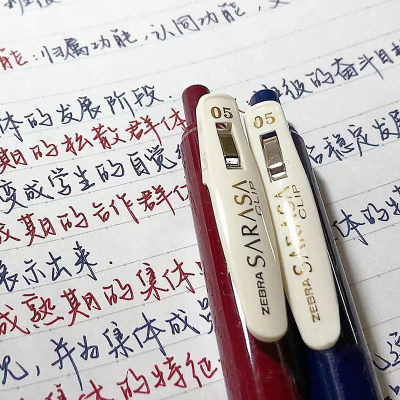 能:归属功能、认同功能、
体的发展阶段.
期的松散群体
级的奋斗目标
变成学生的自觉
稳定发展
成期的合作群体
体的特
表示出来.
成熟期的集体
况,并为集体成员
集体的特征
05
ZEBRA SARASA CLIP
05
ZEBRA SARASA CLIP